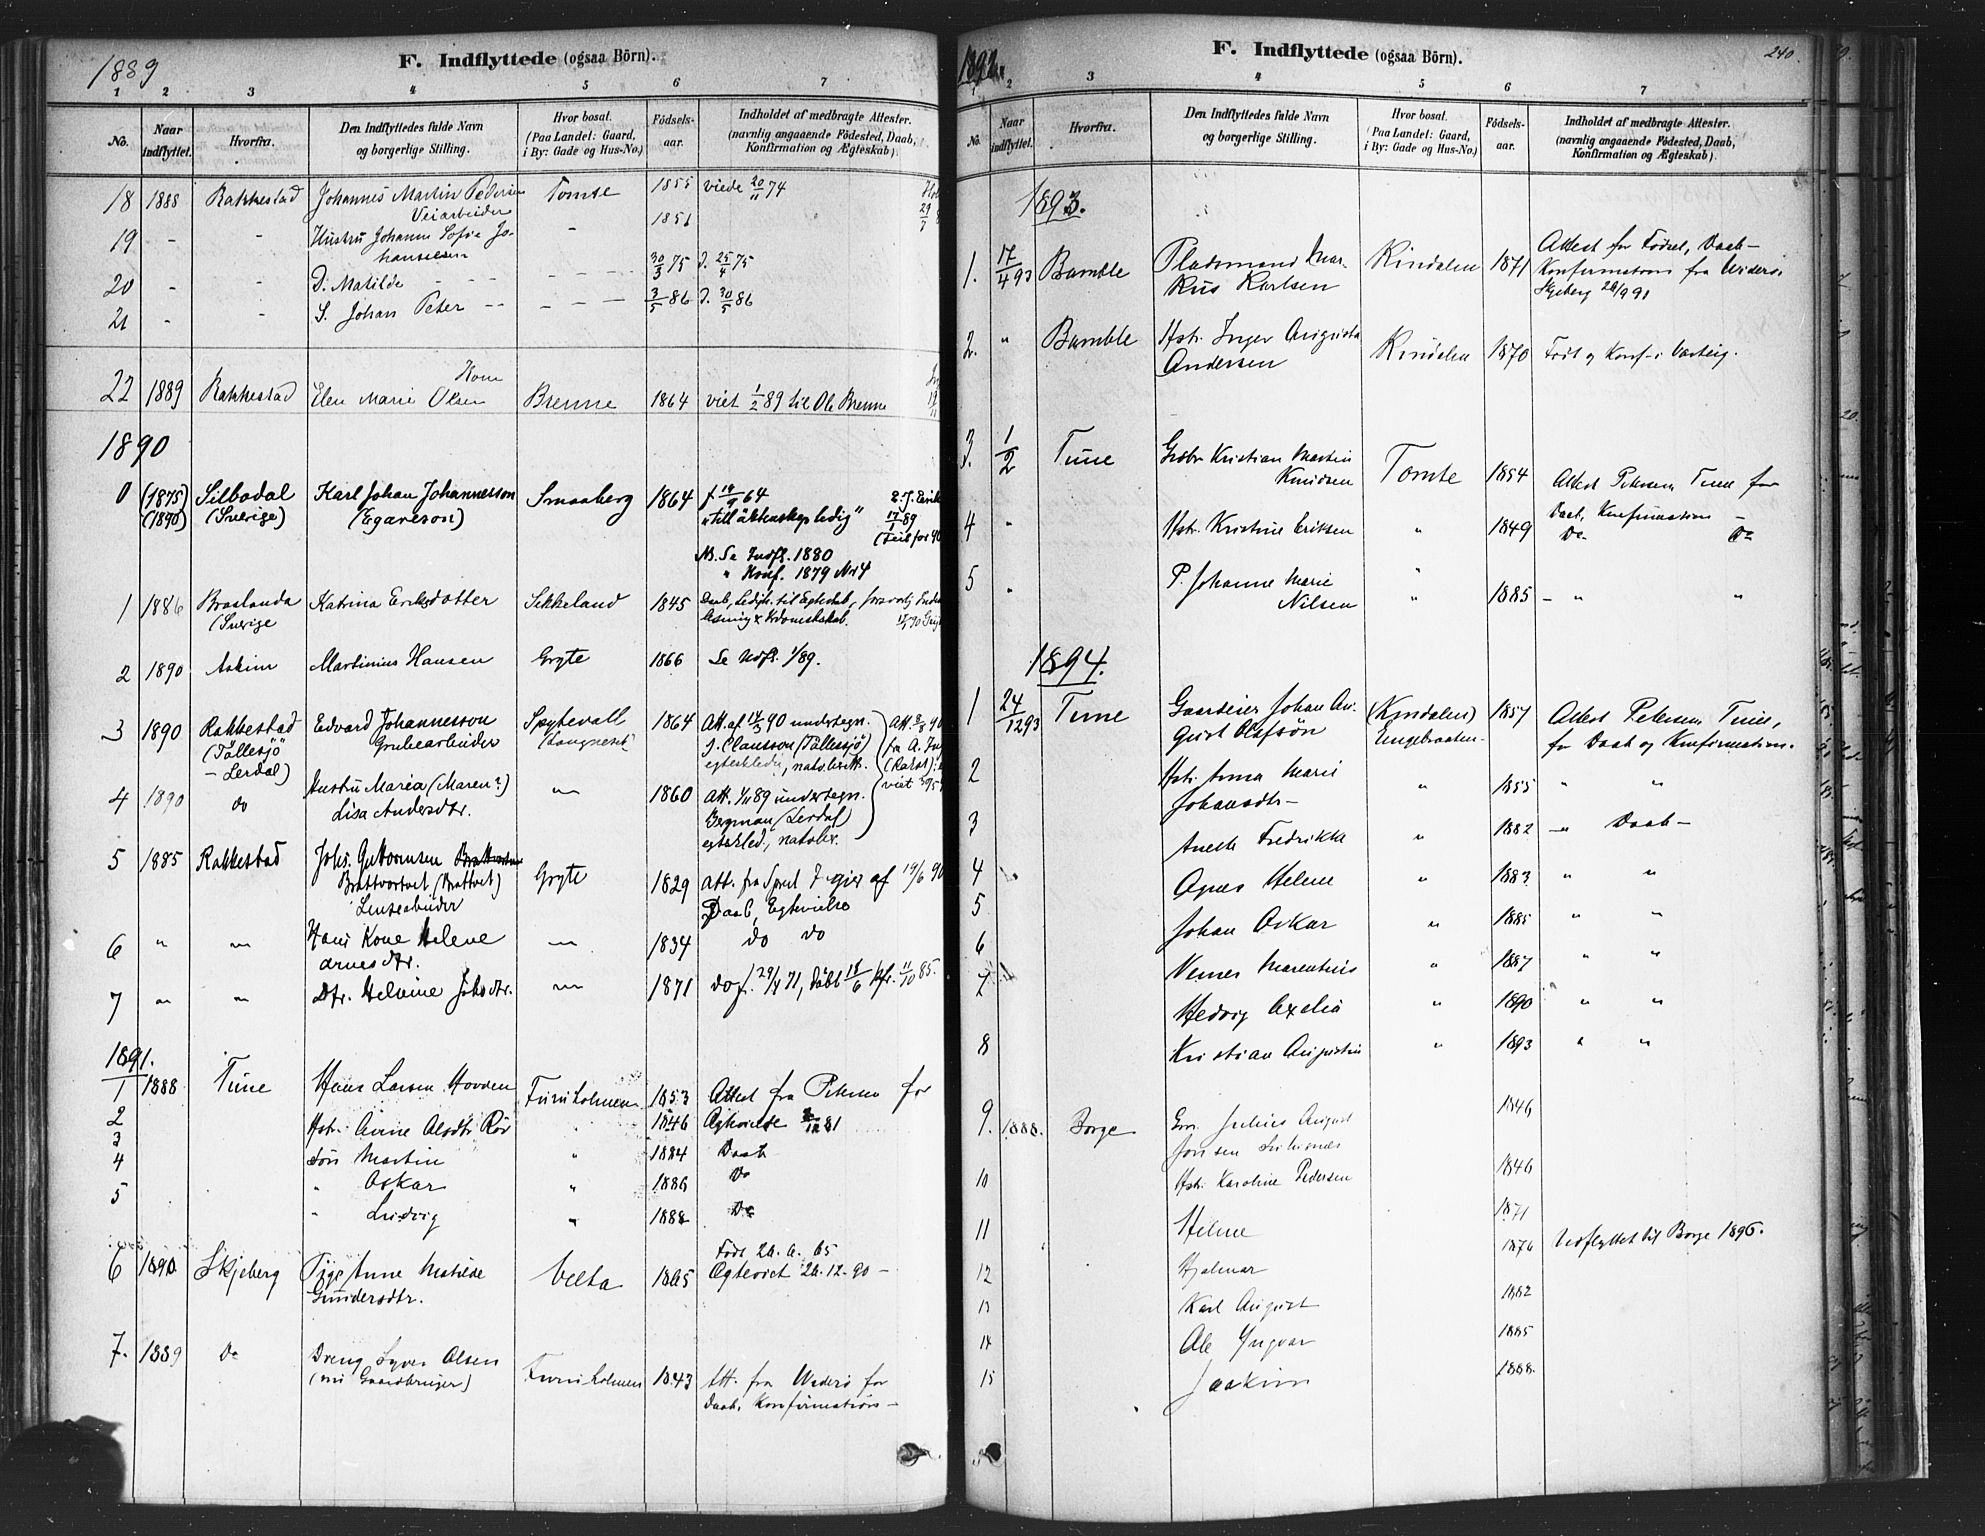 1889
F. Indflyttede (ogsaa Börn).
1 2 3 4 5 6 7
No. Naar indflyttet. Hvorfra. Den Indflyttedes fulde Navn og borgerlige Stilling. Hvor bosat. (Paa Landet: Gaard, i By: Gade og Hus-No.) Födsels-aar. Indholdet af medbragte Attester. (navnlig angaaende Födested, Daab, Konfirmation og Ægteskab).
18 1888 Rakkestad Johannes Martin Pedersen Tomte 1855 viede 20/11 74
Veiarbeider
19 - - Hustru Johanne Sofie Jo- - 1851
hannesen
20 - - D. Matilde - - - - 30/3 75 D. 25/4 75
21 - - S. Johan Peter - - - - - 3/5 86 D. 30/5 86
22 1889 Rakkestad Elen Marie Olsen Kone Brenne 1864 viet 1/2 89 til Ole Brenne
1890
0 (1875) Silbodal Karl Johan Johannesson Smaaberg 1864 f 19/9 64
(1890) (Sverige) (Egareson) "till äktenskap ledig"
17/1 89
(Feil for 90
NB. Se Indfl. 1880
" Konf. 1879 Nr 4
1 1886 Braslanda Katrina Eriksdotter Sekkelund 1845 Daab, Ledigh. til Egteskab,
(Sverige
2 1890 Askim Martinius Hansen Gryte 1866 Se Udfl. 1/89.
3 1890 Rakkestad Edvard Johannesson Spytevall 1864 Att. af 14/3 90 undertegn.
(Töllesjö Grubearbeider J. Clausson (Töllesjö)
- Lerdal)
4 1890 do Hustru Maria (Maren?) " 1860 Att. 1/11 89 undertegn.
Lisa Andersdtr. Bergman (Lerdal)
5 1885 Rakkestad Johs. Guttormsen Gryte 1829 Att. fra Sprest af 19/6 90
Brattvortvet (Brattvet) Daab, Egtevielse
6 " " Hans Kone Helene " 1834 do do
Arnesdtr.
7 " " Dtr. Helvine Johsdtr. " 1871 do f. 29/4 71, Döbt 18/6 Kfr. 11/10 85.
1891.
1 1888 Tune Hans Larsen Hovden Furuholmen 1853 Attest fra Petersen for
2 Hstr. Anne Olsdtr Röv " 1846 Egtevielse 81
3 Sön Martin " 1884 Daab
4 " Oskar " 1886 Do
5 " Ludvig " 1888 Do
6 1890 Skjeberg Pige Anne Matilde Velta 1865 Födt 26. 6. 65
Gundersdtr. Egteviet 26.12.90 -
7. 1889 Do Dreng Syver Olsen Furuholmen 1843 Att. fra Underö for
(nu Gaardbruger) Daab, Konfirmation -
1892.
F. Indflyttede (ogsaa Börn).
240.
1 2 3 4 5 6 7
No. Naar indflyttet. Hvorfra. Den Indflyttedes fulde Navn og borgerlige Stilling. Hvor bosat. (Paa Landet: Gaard, i By: Gade og Hus-No.) Födsels-aar. Indholdet af medbragte Attester. (navnlig angaaende Födested, Daab, Konfirmation og Ægteskab).
1893.
1. 17/4 93 Bamble Pladsmand Mar- Kindalen 1871 Attest for Födsel, Daab-
kus Karlsen Konfirmation fra
Skjeberg 26/9 91
2. " Bamble Hstr. Inger Augusta Kindalen 1870 Födt og Konf. i Varteig.
Andersen
3. 1/2 Tune Grbr Kristian Martin Tomte 1854 Attest Petersen Tune for
Knudsen Daab, Konfirmation -
4 " Hstr. Kristine Eriksen " 1849 Do Do
5 " P. Johanne Marie " 1885 - " "
Nilsen
1894.
1 24/12 93 Tune Gaardeier Johan Au- (Kindalen) 1857 Attest Petersen Tune,
gust Olafsön Engebraaten for Daab og Konfirmation.
2 Hstr. Anna Marie " 1855 " "
Johansdtr-
3 Anette Fredrikke " 1882 - " Daab -
4 Agnes Helene " 1883 " "
5 Johan Oskar " 1885 " "
6 Verner Marentius " 1887 " "
7 Hedvig Axelia " 1890 " "
8 Kristian Augustin " 1893 " "
9. 1888. Borge Grv. Julius August 1846
Jonsen
10 Hstr. Karoline Pedersen 1846
11 Helene 1871
12 Hjalmar 1876 Udflyttet til Borge 1896.
13 Karl August 1882
14 Ole Yngvar 1885
15 Joakim 1888.